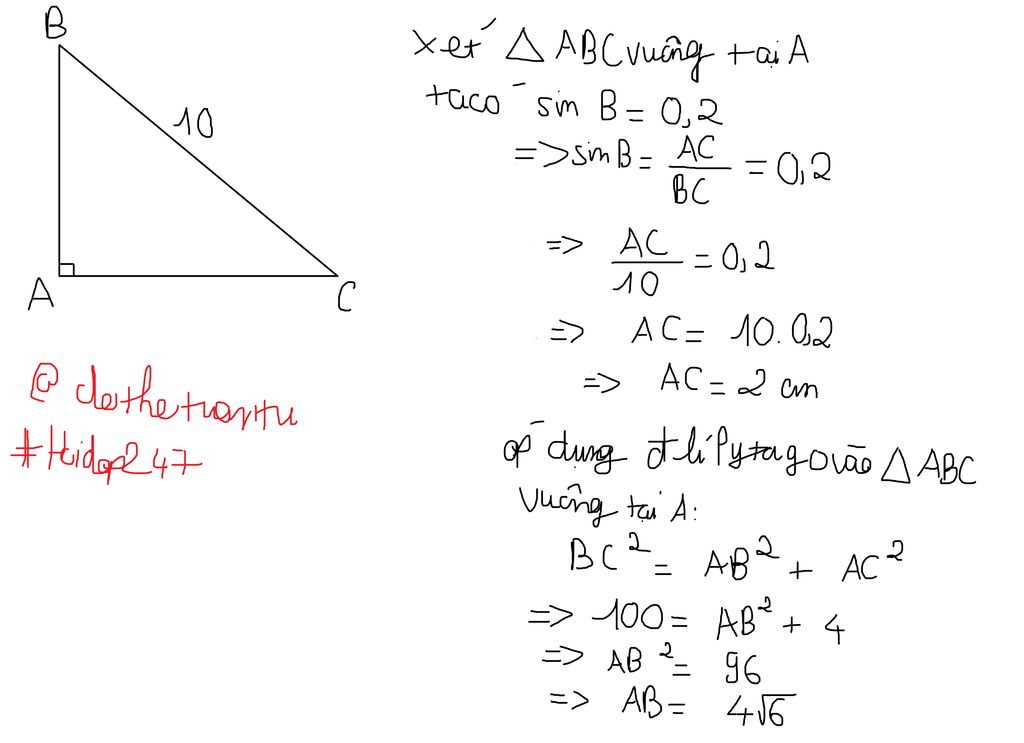 B
10
A
C
@ dethetuantu
#Hidap247
xét △ ABC vuông tại A
ta có sin B = 0,2
=> sin B = AC/BC = 0,2
=> AC/10 = 0,2
=> AC = 10.0,2
=> AC = 2 cm
áp dụng đ lí Pytago vào △ ABC
vuông tại A:
BC² = AB² + AC²
=> 100 = AB² + 4
=> AB² = 96
=> AB = 4√6